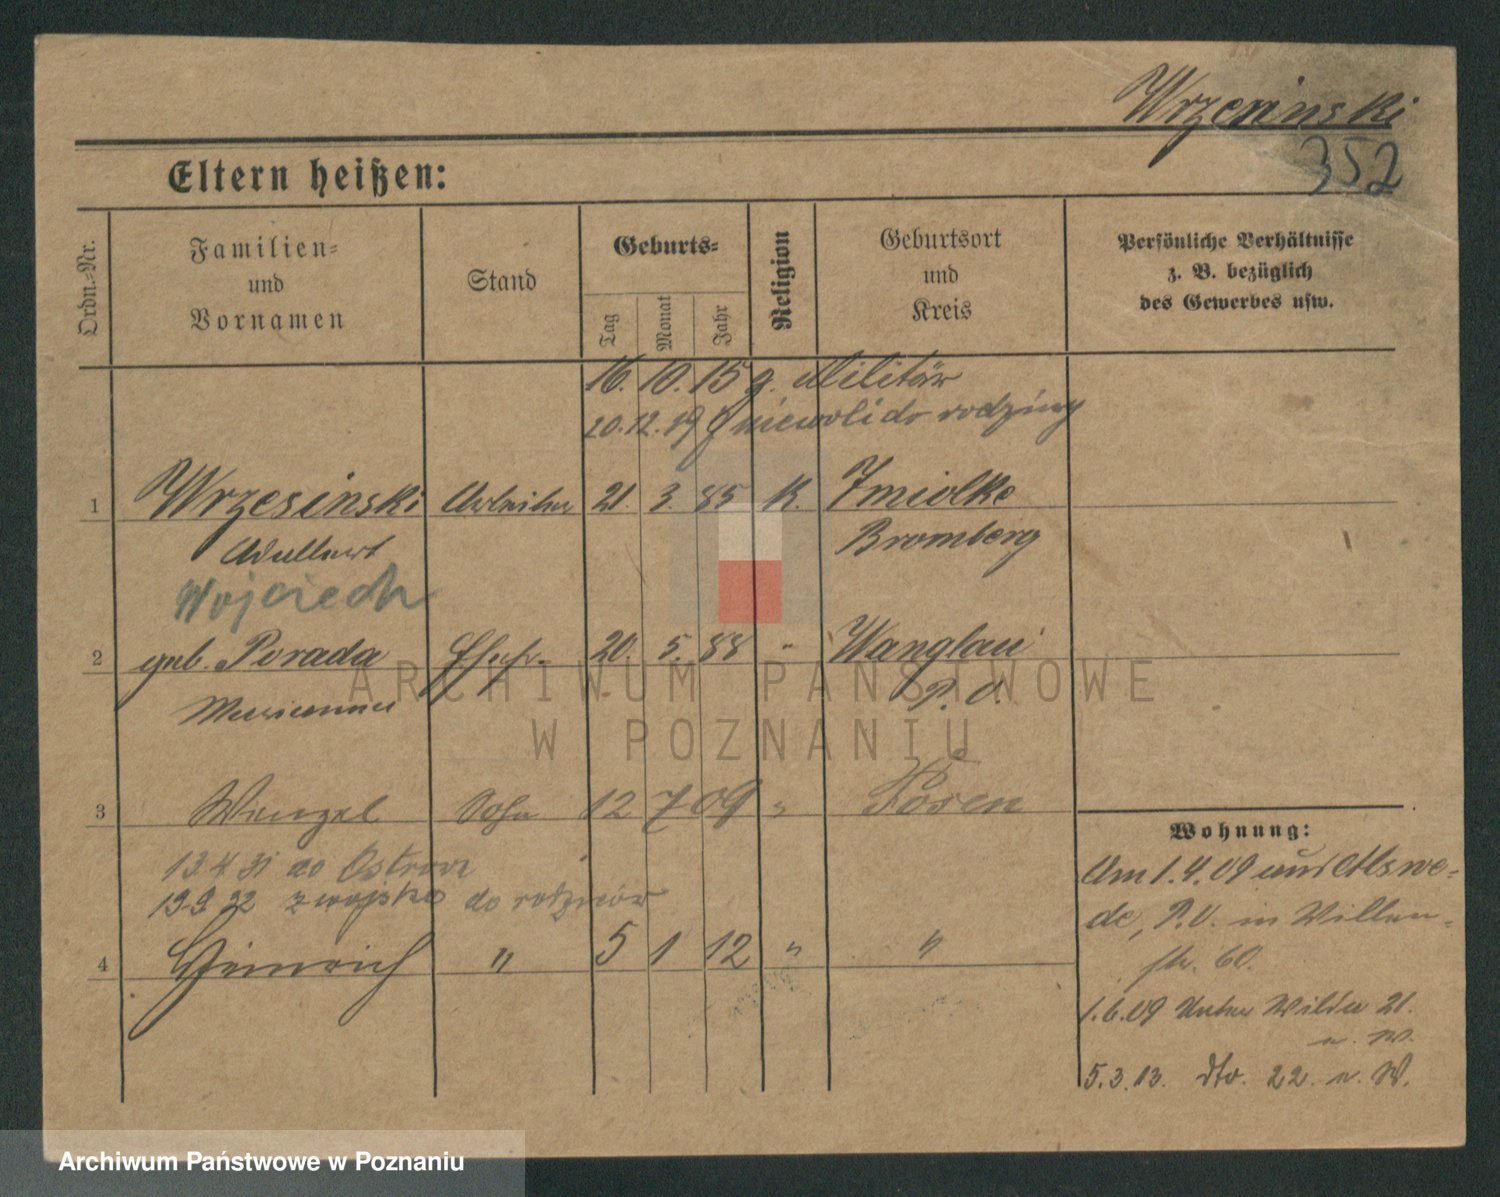 Wrzesinski
352
Eltern heißen:
Ordn.-Nr.
Familien- und Vornamen
Stand
Geburts-
Tag
Monat
Jahr
Religion
Geburtsort und Kreis
Persönliche Verhältnisse
z. B. bezüglich
des Gewerbes usw.
16. 10. 15 z. Militär
20. 12. 19 z niewoli do rodziny
1 Wrzesinski Arbeiter 21. 3. 85 K. Zmielke
Adalbert Bromberg
Wojciech
2 geb. Porada Ehefr. 20. 5. 88 " Wanglau
Marianna P. O.
ARCHIWUM PAŃSTWOWE
W POZNANIU
3 Wenzel Sohn 12 7 09 " Posen
13 4 31 do Ostrowa
19 9 32 z wojska do rodziców
4 Heinrich " 5 1 12 " "
Wohnung:
Am 1. 4. 09 aus
de, P. O. in
str. 60.
1. 6. 09 Unter Wilda 21.
n. W.
5. 3. 13. dto. 22. n. W.
Archiwum Państwowe w Poznaniu